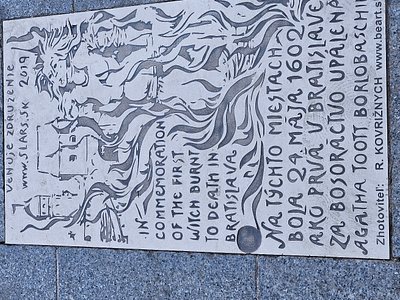 VENUJE ZDRUŽENIE
www.SLARS.SK 2019
IN
COMMEMORATION
OF THE FIRST
WITCH BURNT
TO DEATH IN
BRATISLAVA
NA TÝCHTO MIESTACH
BOLA 24. MÁJA 1602
AKO PRVÁ V BRATISLAVE
ZA BOSORÁCTVO UPÁLENÁ
AGÁTHA TOOTT BORLOBASCHIN
Zhotoviteľ: R. KOVRIŽNYCH www.bearts